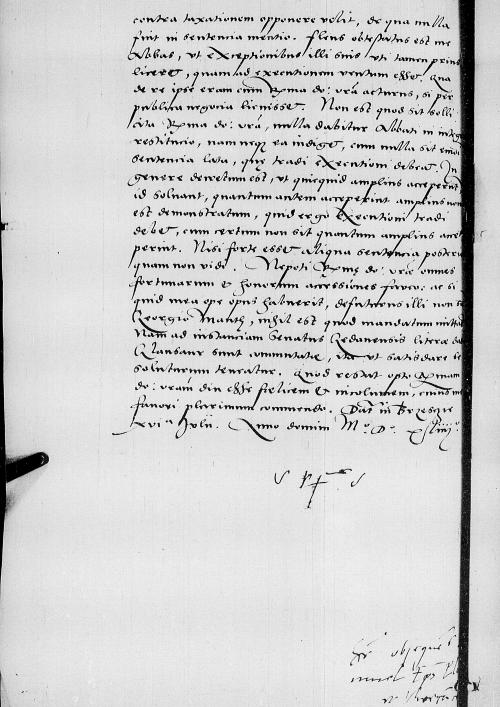 contra taxationem opponere velit, de qua nulla
fuit in sententia mentio. Flens obtestatus est me
Abbas, ut exceptionibus illi suis uti tamen prius
liceret, quam ad executionem ventum esset. Qua
de re ipse eram cum Rma do: vra acturus, si per
publica negocia licuisset. Non est quod sit solli
cita Rma do: vra, nulla dabitur Abbati in integ
restitucio, nam neque ea indiget, cum nulla sit
sententia lata, que tradi executioni debeat. In
genere decretum est, ut quicquid amplius acceperit
id solvant, quantum autem acceperint amplius non
est demonstratum, quid ergo executioni tradi
debet, cum certum non sit quantum amplius acce
perint. Nisi forte esset aliqua sententia postre
quam non vidi. Nepoti Rme do: vre omnes
fortunarum & honorum accessiones faveo: ac si
quid mea ope opus habuerit, defuturus illi non
Georgio Manth, nihil est quod mandatum mitta
Nam ad instanciam Senatus Gedanensis litere
Glausaur sunt commutate, ita ut satisdare
soluturum teneatur. Quod restat opto Rmam
do: vram diu esse felicem & incolumem, cuius
favori plurimum commendo. Dat in Brzescie
xvi Julii. Anno domini M.D.xliiij